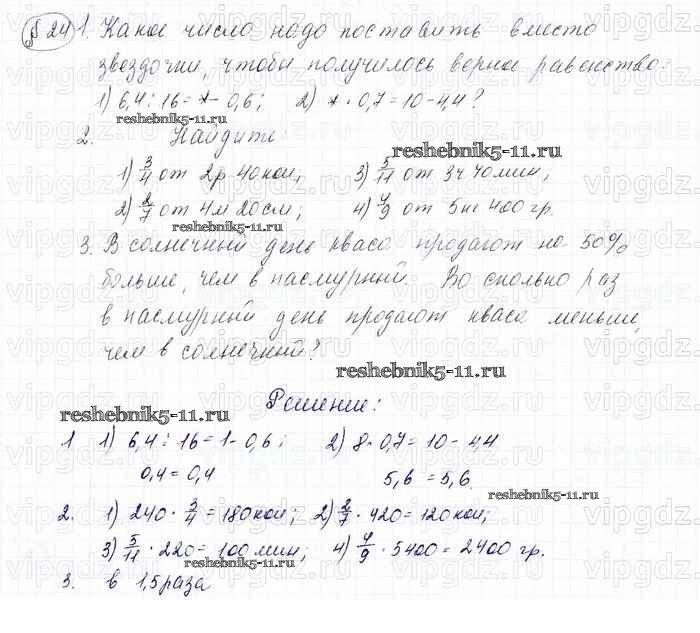 § 24 1. Какое число надо поставить вместо
звездочки, чтобы получилось верное равенство:
1) 6,4 : 16 = * - 0,6; 2) * · 0,7 = 10 - 4,4?
reshebnik5-11.ru
2. Найдите:
reshebnik5-11.ru
1) 3/4 от 2р 40 коп; 3) 5/11 от 3ч 40 мин;
2) 2/7 от 4м 20 см; 4) 4/9 от 5кг 400 гр.
3. В солнечный день кваса продают на 50%
больше, чем в пасмурный. Во сколько раз
в пасмурный день продают кваса меньше,
чем в солнечный?
reshebnik5-11.ru
Решение:
reshebnik5-11.ru
1 1) 6,4 : 16 = 1 - 0,6; 2) 8 · 0,7 = 10 - 4,4
0,4 = 0,4 5,6 = 5,6
reshebnik5-11.ru
2. 1) 240 · 3/4 = 180 коп; 2) 2/7 · 420 = 120 коп;
3) 5/11 · 220 = 100 мин; 4) 4/9 · 5400 = 2400 гр.
3. в 1,5 раза